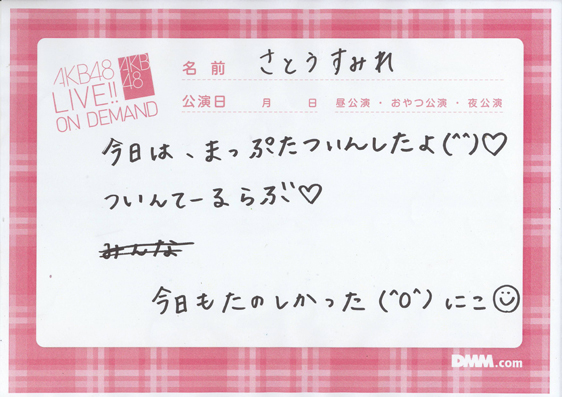 AKB48
LIVE!!
ON DEMAND
AKB
48
名前 さとうすみれ
公演日 月 日 昼公演・おやつ公演・夜公演
今日は、まっぷたついんしたよ(^^)♡
ついんてーるらぶ♡
みんな
今日もたのしかった (^O^) にこ☺
DMM.com